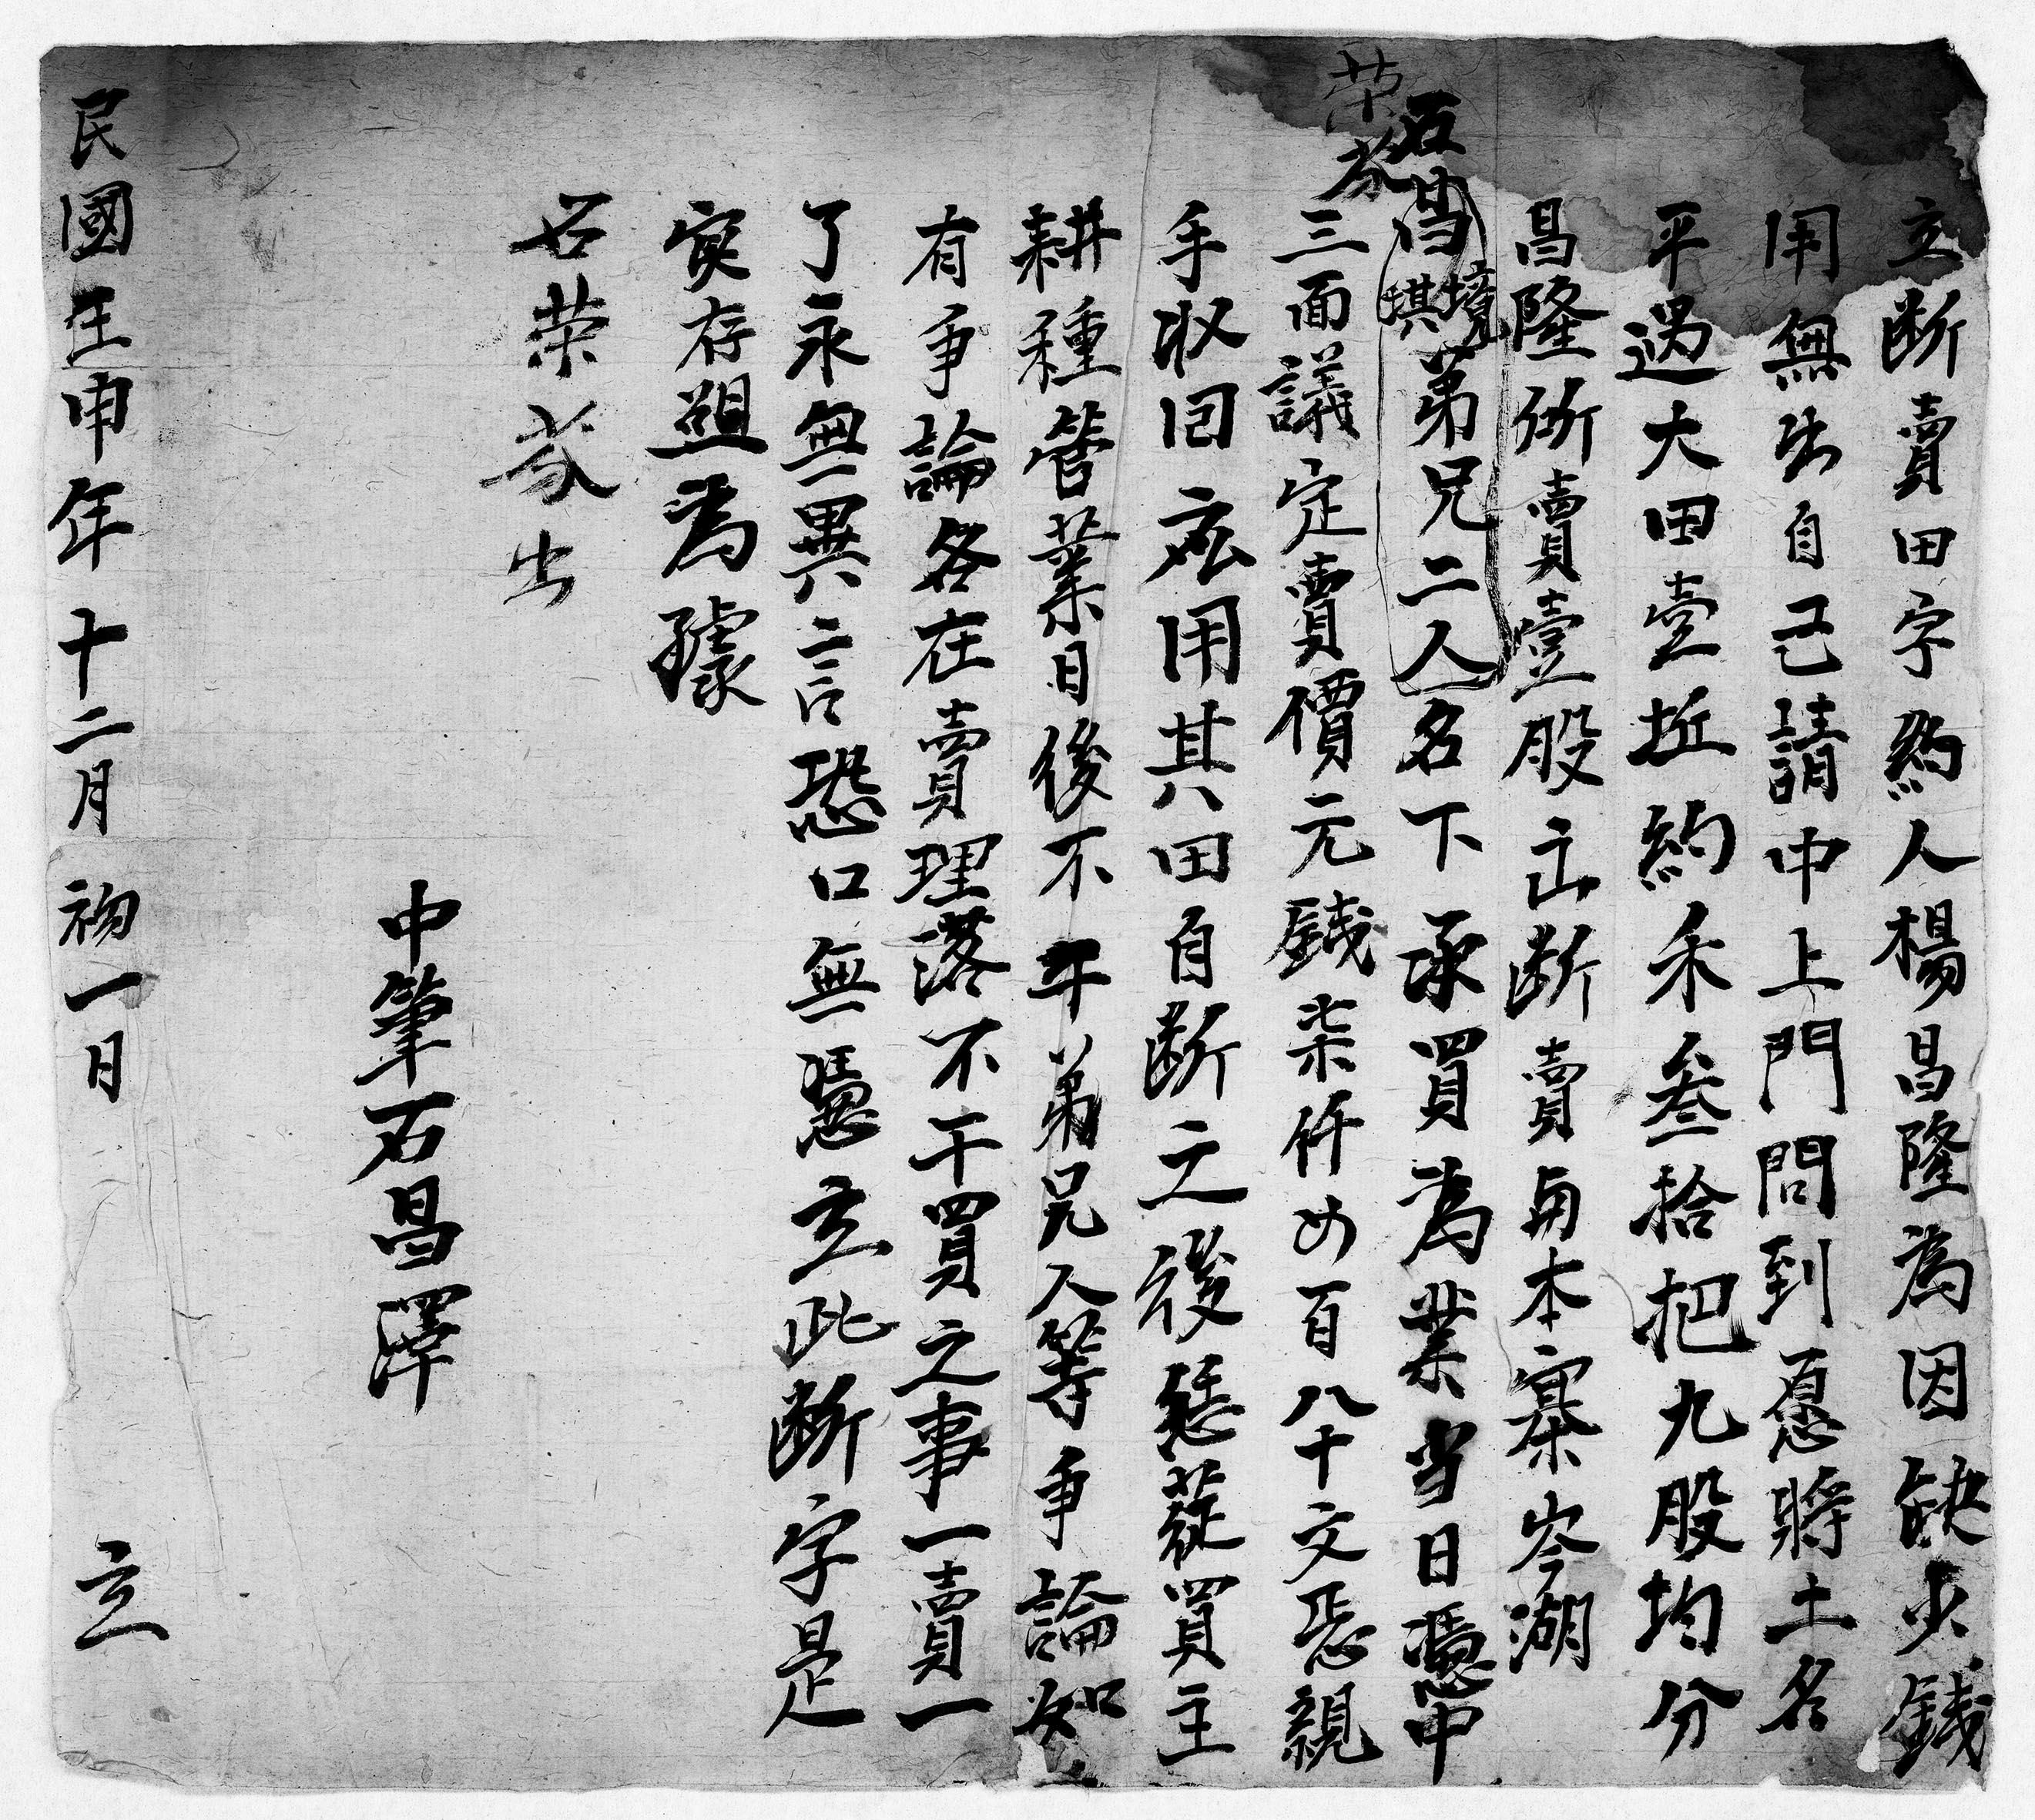 立断賣田字約人楊昌隆為因缺少銭
用無出自己請中上門問到愿將土名
平邁大田壹坵約禾叁拾把九股均分
昌隆所賣壹股出断賣與本寨岑湖
石昌境琪弟兄二人名下承買為業當日憑中
荣
三面議定賣價元銭柒仟四百八十文恁親
手收回应用其田自断之後恁蓰買主
耕種管業日後不年弟兄人等爭論如
有爭論各在賣理落不干買之事一賣一
了永無異言恐口無憑立此断字是
實存照為據
石荣 出
中筆石昌澤
民國壬申年十二月初一日 立